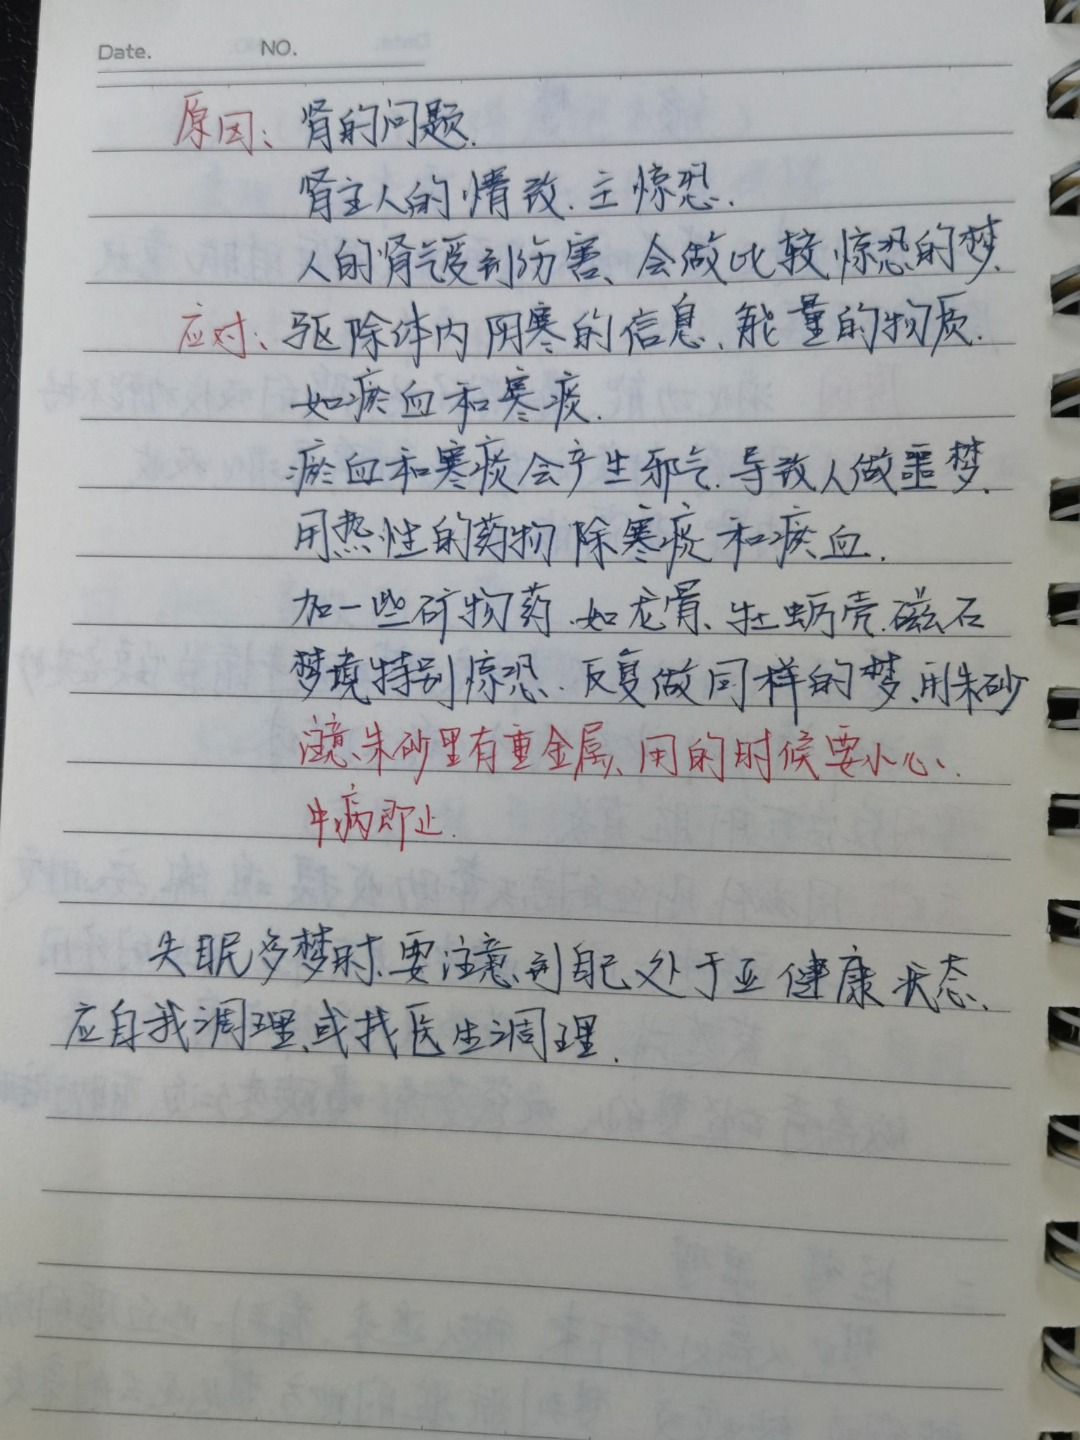 Date. NO.
原因：肾的问题.
肾主人的情致.主惊恐.
人的肾气受到伤害、会做比较惊恐的梦.
应对：驱除体内阴寒的信息、能量的物质.
如瘀血和寒痰.
瘀血和寒痰会产生邪气.导致人做噩梦.
用热性的药物除寒痰和瘀血.
加一些矿物药.如龙骨、牡蛎壳.磁石
梦境特别惊恐.反复做同样的梦、用朱砂
注意、朱砂里有重金属、用的时候要小心、
中病即止.
失眠多梦时、要注意到自己处于亚健康状态、
应自我调理、或找医生调理.